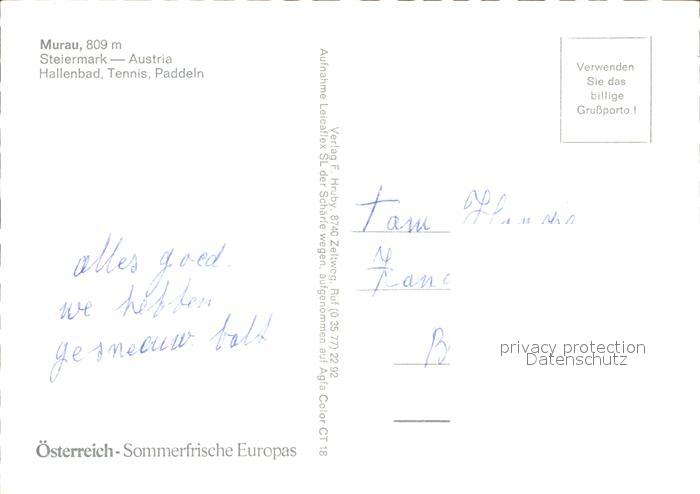 Murau, 809 m
Steiermark — Austria
Hallenbad, Tennis, Paddeln
Verwenden
Sie das
billige
Grußporto !
Verlag F. Hruby, 8740 Zeltweg, Ruf (0 35 77) 22 92
Aufnahme Leicaflex SL der Schärfe wegen, aufgenommen auf Agfa Color CT 18
alles goed.
we hebben
gesneeuw balt
Fam
B
privacy protection
Datenschutz
Österreich - Sommerfrische Europas